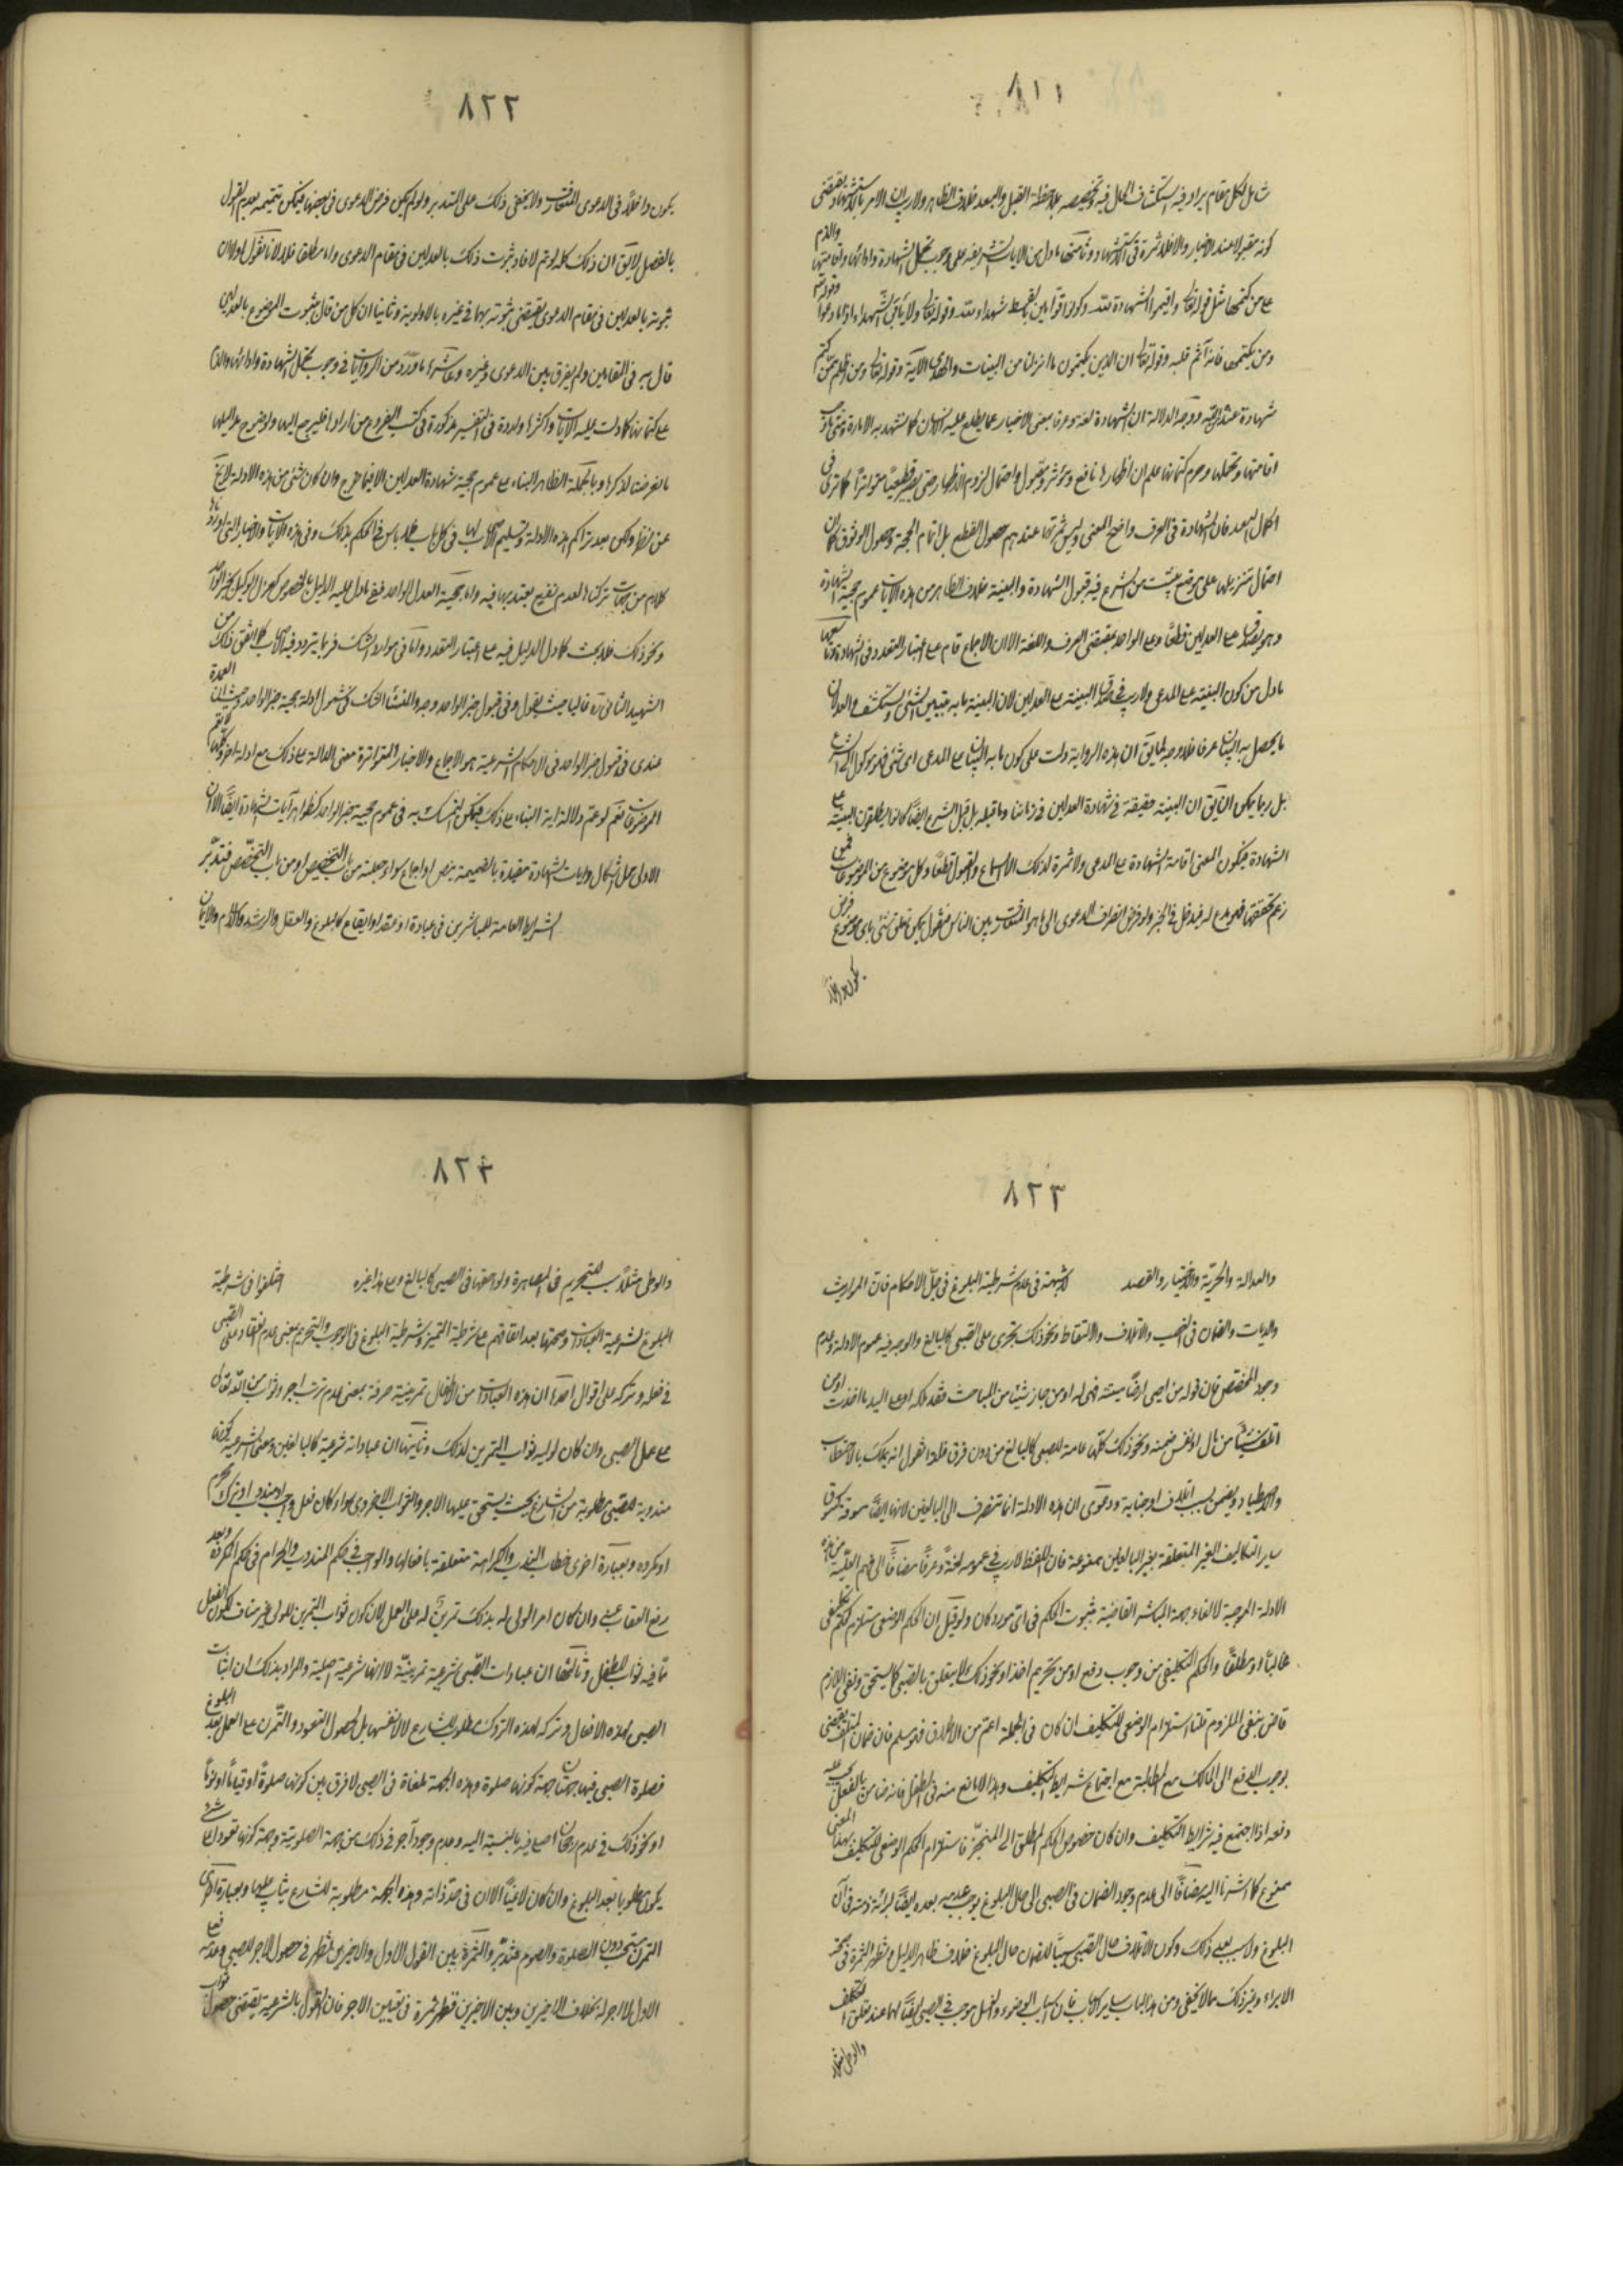 ٨٢١
شامل لكل مقام يراد فيه استكشاف الحال فيه وتخصيصه بملاحظة القبل والبعد خلاف الظاهر ولا ريب ان الامر بالاستشهاد يقتضي
كونه مقبولا عند الاخبار والا فلا ثمرة في الاستشهاد وثامنها ما دل من الايات الشريفة على وجوب تحمل الشهادة وادائها واقامتها والذم
على من كتمها مثل قوله تعالى واقيموا الشهادة لله وكونوا قوامين بالقسط شهداء لله وقوله تعالى ولا يأبى الشهداء اذا ما دعوا وقوله تعالى
ومن يكتمها فانه آثم قلبه وقوله تعالى ان الذين يكتمون ما انزلنا من البينات والهدى الآية وقوله تعالى ومن اظلم ممن كتم
شهادة عنده من الله ووجه الدلالة ان الشهادة لغة وعرفا بمعنى الاخبار عما يطلع عليه الانسان كما تشهد به الامارة ومتى وجب
اقامتها وتحملها وحرم كتمانها علم ان اظهارها نافع ومؤثر ومقبول واحتمال لزوم الاظهار حتى يصير قطعيا متواترا كما ترى في
كمال البعد فان الشهادة في العرف واضح المعنى وليس ثمرتها عندهم حصول القطع بل اتمام الحجة وحصول الوثوق كما ان
احتمال تنزيلها على موضع يثبت من الشرع فيه قبول الشهادة والبينة خلاف الظاهر من هذه الايات عموم حجية الشهادة
وهي يصدق على العدلين قطعا وعلى الواحد بمقتضى العرف واللغة الا ان الاجماع قام على اعتبار التعدد في الشهادة وتاسعها
ما دل من كون البينة على المدعي ولا ريب في صدق البينة على العدلين لان البينة ما به يتبين الشيء ويستكشف والعدلان
ما يحصل به البيان عرفا فلا وجه لما يق ان هذه الرواية دلت على كون ما به البيان على المدعي اي شيء فهو موكول الى الشرع
بل ربما يمكن ان يق ان البينة حقيقة في شهادة العدلين في زماننا وما قبله بل قبل الشرع ايضا كانوا يطلقون البينة على
الشهادة فيكون المعنى اقامة الشهادة على المدعي ولا ثمرة لذلك الا السماع والقبول قطعا وكل موضوع من الموضوعات فمن
زعم تحققها فهو مدع له فيدخل في الخبر ولو فرض انصراف الدعوى الى ما هو المتعارف بين الناس فنقول يمكن تعلق شيء باي موضوع فرض
يكون داخلا
٨٢٢
يكون داخلا في الدعوى المتعارف ولا يخفى ذلك على المتدبر ولو لم يكن فرض الدعوى في بعضها فيمكن تتميمه بعدم القول
بالفصل لا يق ان ذلك كله لو تم لافاد ثبوت ذلك بالعدلين في مقام الدعوى واما مطلقا فلا لانا نقول اولا ان
ثبوته بالعدلين في مقام الدعوى يقتضي ثبوته بهما في غيره بالاولوية وثانيا ان كل من قال بثبوت الموضوع بالعدلين
قال به في المقامين ولم يفرق بين الدعوى وغيره وعاشرها ما ورد من الروايات في وجوب تحمل الشهادة وادائها والذم
على كتمانها كما دلت عليه الآيات واكثرها واردة في التفسير مذكورة في كتب الفروع من اراد فليرجع اليها ولوضوح مداليلها
ما تعرضت لذكرها وبالجملة الظاهر البناء على عموم حجية شهادة العدلين الا فيما خرج وان كان شيء من هذه الادلة لا يخ
عن نظر ولكن بعد تراكم هذه الادلة وتسليم الاصحاب لها في كل باب فلا باس في الحكم بذلك وفي هذه الآيات والاخبار التي اوردناها
كلام من جهات تركناها لعدم نفع يعتد بها فيه واما حجية العدل الواحد ففي ما دل عليه الدليل بالخصوص كعزل الوكيل بخبر الواحد
ونحو ذلك فلا بحث كما دل الدليل فيه على اعتبار التعدد واما في موارد الشك فربما يتردد فيه الاصحاب كما اتفق ذلك من
الشهيد الثاني ره غالبا حيث يقول وفي قبول خبر الواحد وجه والمنشأ الشك في شمول ادلة حجية خبر الواحد وحيث ان العمدة
عندي في قبول خبر الواحد في الاحكام الشرعية هو الاجماع والاخبار المتواترة معنى الدالة على ذلك مع ادلة اخرى وكلها لا يعم
الموضوعات نعم لو عم دلالة اية النباء على ذلك فيمكن التمسك به في عموم حجية خبر الواحد كظواهر آيات الشهادة ايضا الا ان
الاول محل اشكال وايات الشهادة مقيدة بالضميمة بنص او اجماع سواء جعلته من باب التخصيص او من باب التخصص فتدبر
الشرايط العامة للمباشرين في عبادة او عقد او ايقاع كالبلوغ والعقل والرشد والاسلام والايمان
٨٢٣
والعدالة والحرية والاختيار والقصد لا شبهة في عدم شرطية البلوغ في جل الاحكام فان المواريث
والديات والضمان في الغصب والاتلاف والالتقاط ونحو ذلك تجري على الصبي كالبالغ والوجه فيه عموم الادلة وعدم
وجود المخصص فان قوله من احيى ارضا ميتة فهي له او من حاز شيئا من المباحات فقد ملكه او على اليد ما اخذت او من
اتلف شيئا من مال الغير ضمنه ونحو ذلك كلها عامة للصبي كالبالغ من دون فرق فلذا نقول انه يملك بالاحتطاب
والاصطياد ويضمن بسبب اتلاف او جناية ودعوى ان هذه الادلة انما تنصرف الى البالغين لانها ايضا مسوقة كسوق
ساير التكاليف الغير المتعلقة بغير البالغين ممنوعة فان اللفظ لا ريب في عمومه لغة وعرفا مضافا الى فهم العلية من هذه
الادلة الموجبة لالغاء جهة المباشر القاضية بثبوت الحكم في اي مورد كان ولو قيل ان الحكم الوضعي مستلزم للحكم تكليفي
غالبا او مطلقا والحكم التكليفي من وجوب دفع او من تحريم اخذ او نحو ذلك لا يتعلق بالصبي كما سيتحقق ونفي اللازم
قاض بنفي الملزوم قلنا استلزام الوضعي للتكليف ان كان في الجملة اعم من الاطلاق فهو مسلم فان ضمان المتلف يقتضي
بوجوب الدفع الى المالك مع المطالبة مع اجتماع شرايط التكليف وهذا لا مانع منه في الطفل فانه ضامن بالفعل يجب عليه
دفعه اذا اجتمع فيه شرايط التكليف وان كان خصوص الحكم المطلق الى المنجز فاستلزام الحكم الوضعي للتكليف بهذا المعنى
ممنوع كما اشرنا اليه مضافا الى عدم وجود الضمان في الصبي الى حال البلوغ يوجب عدمه بعده ايضا لبرائة ذمته في آن
البلوغ ولا سبب بعد ذلك وكون الاتلاف حال الصبي سببا للضمان حال البلوغ خلاف ظاهر الدليل وتظهر الثمرة في صحة
الابراء وغير ذلك مما لا يخفى ومن هذا الباب ساير الاسباب فان اسباب الوضوء والغسل موجب في الصبي ايضا لهما عند تعلق التكليف
والوطي مثلا
٨٢٤
والوطي مثلا سبب للتحريم في المصاهرة ولواحقها في الصبي كالبالغ وعلى هذا غيره اختلفوا في شرطية
البلوغ لشرعية العبادات وصحتها بعد اتفاقهم على شرطية التميز وشرطية البلوغ في الوجوب والتحريم بمعنى عدم العقاب على الصبي
في فعله وتركه على اقوال احدها ان هذه العبادات من الاطفال تمرينية صرفة بمعنى عدم ترتب اجر وثواب من الله تعالى
على عمل الصبي وان كان لوليه ثواب التمرين لذلك وثانيها ان عباداته شرعية كالبالغين ومعنى الشرعية كونها
مندوبة للصبي مطلوبة من الشارع بحيث يستحق عليها الاجر والثواب الاخروي سواء كان فعل واجب او مندوب او ترك محرم
او مكروه وبعبارة اخرى خطاب الندب والكراهة متعلقة بافعالها والواجب في حكم المندوب والحرام في حكم المكروه وبعد
رفع العقاب عنه وان كان امر الولي له بذلك تمرينا له على العمل لان كون ثواب التمرين للولي غير مناف لكون الفعل
مما فيه ثواب للطفل وثالثها ان عبادات الصبي شرعية تمرينية لا انها شرعية اصلية والمراد بذلك ان اتيان
الصبي بهذه الافعال وتركه لهذه التروك مطلوب للشارع لا لانفسها بل لحصول التعود والتمرن على العمل بعد البلوغ
فصلوة الصبي فيها جهتان جهة كونها صلوة وهذه الجهة ملغاة في الصبي لا فرق بين كونها صلوة او قياما او نوما
او نحو ذلك في عدم رجحان اصلي فيه بالنسبة اليه وعدم وجود آجر في ذلك من جهة الصلوتية وجهة كونها تعودا على شيء
يكون مطلوبا بعد البلوغ وان كان لاغيا الان في حد ذاته وهذه الجهة مطلوبة للشارع يثاب عليها وبعبارة اخرى
التمرن مستحب دون الصلوة والصوم فتدبر والثمرة بين القول الاول والاخيرين تظهر في حصول الاجر للصبي وعدمه فعلى
الاول لا اجر له بخلاف الاخيرين وبين الاخيرين تظهر ثمرة في تعيين الاجر فان القول بالشرعية يقتضي حصول ثواب